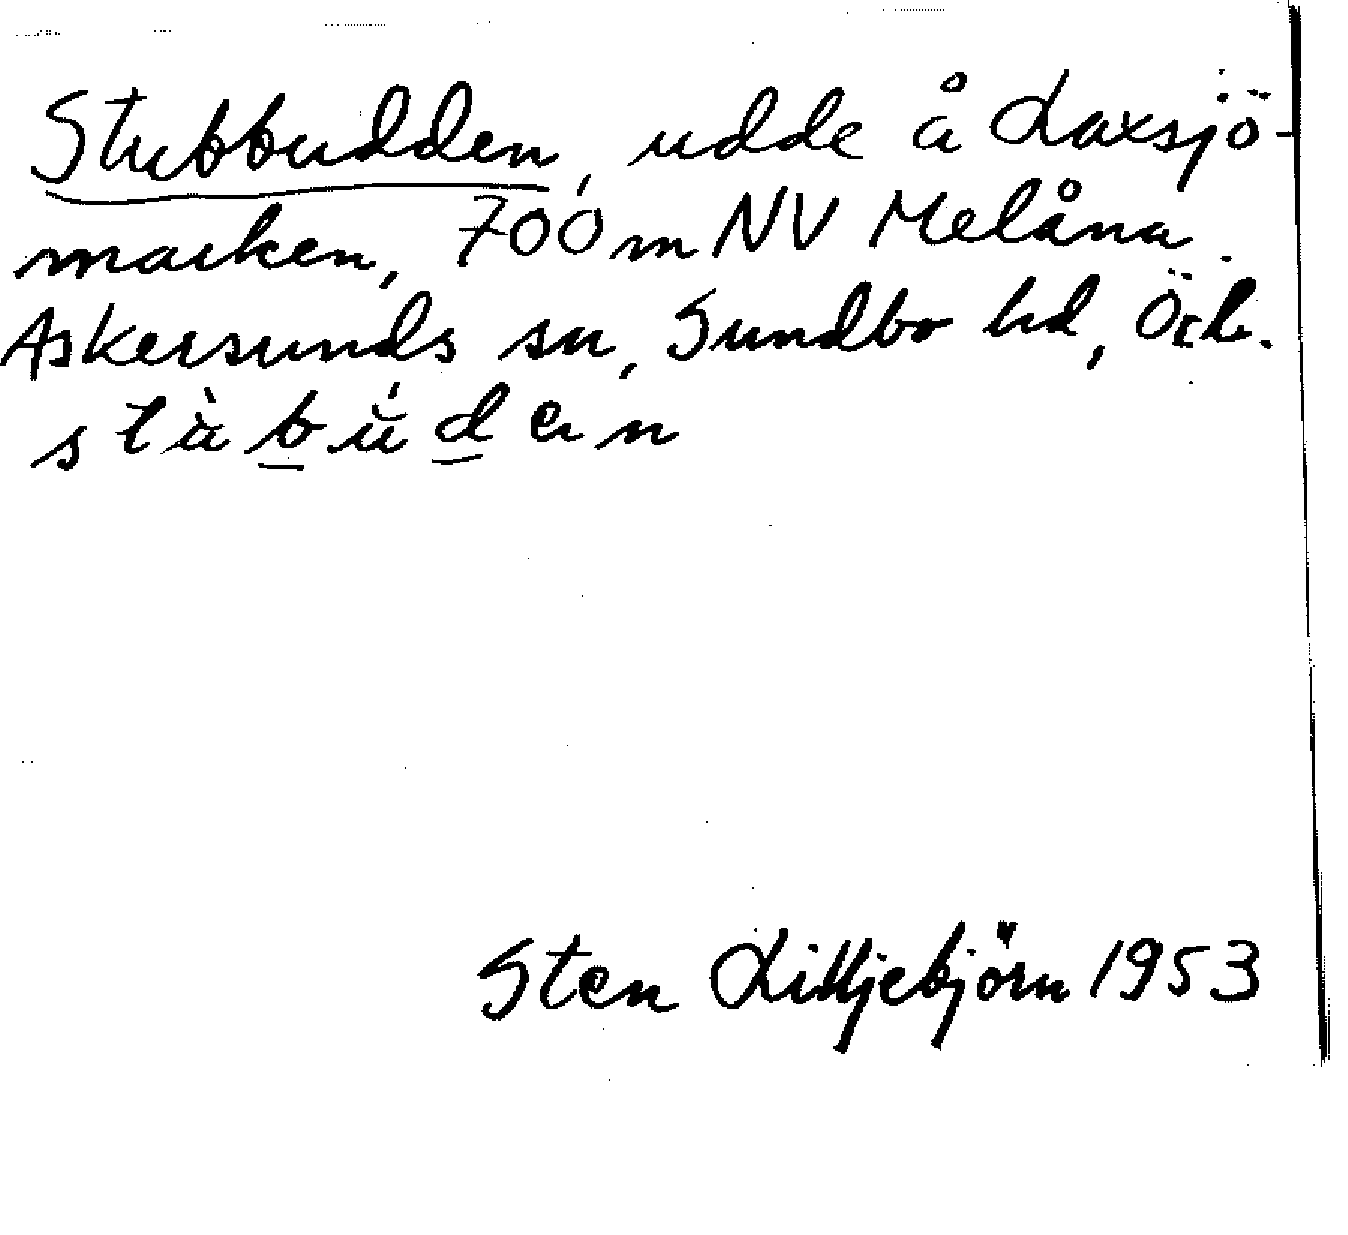 Stubbudden, udde å Laxsjö-
marken, 700 m NV Melåna.
Askersunds sn, Sundbo hd, Öd.
Sten Lilljebjörn 1953